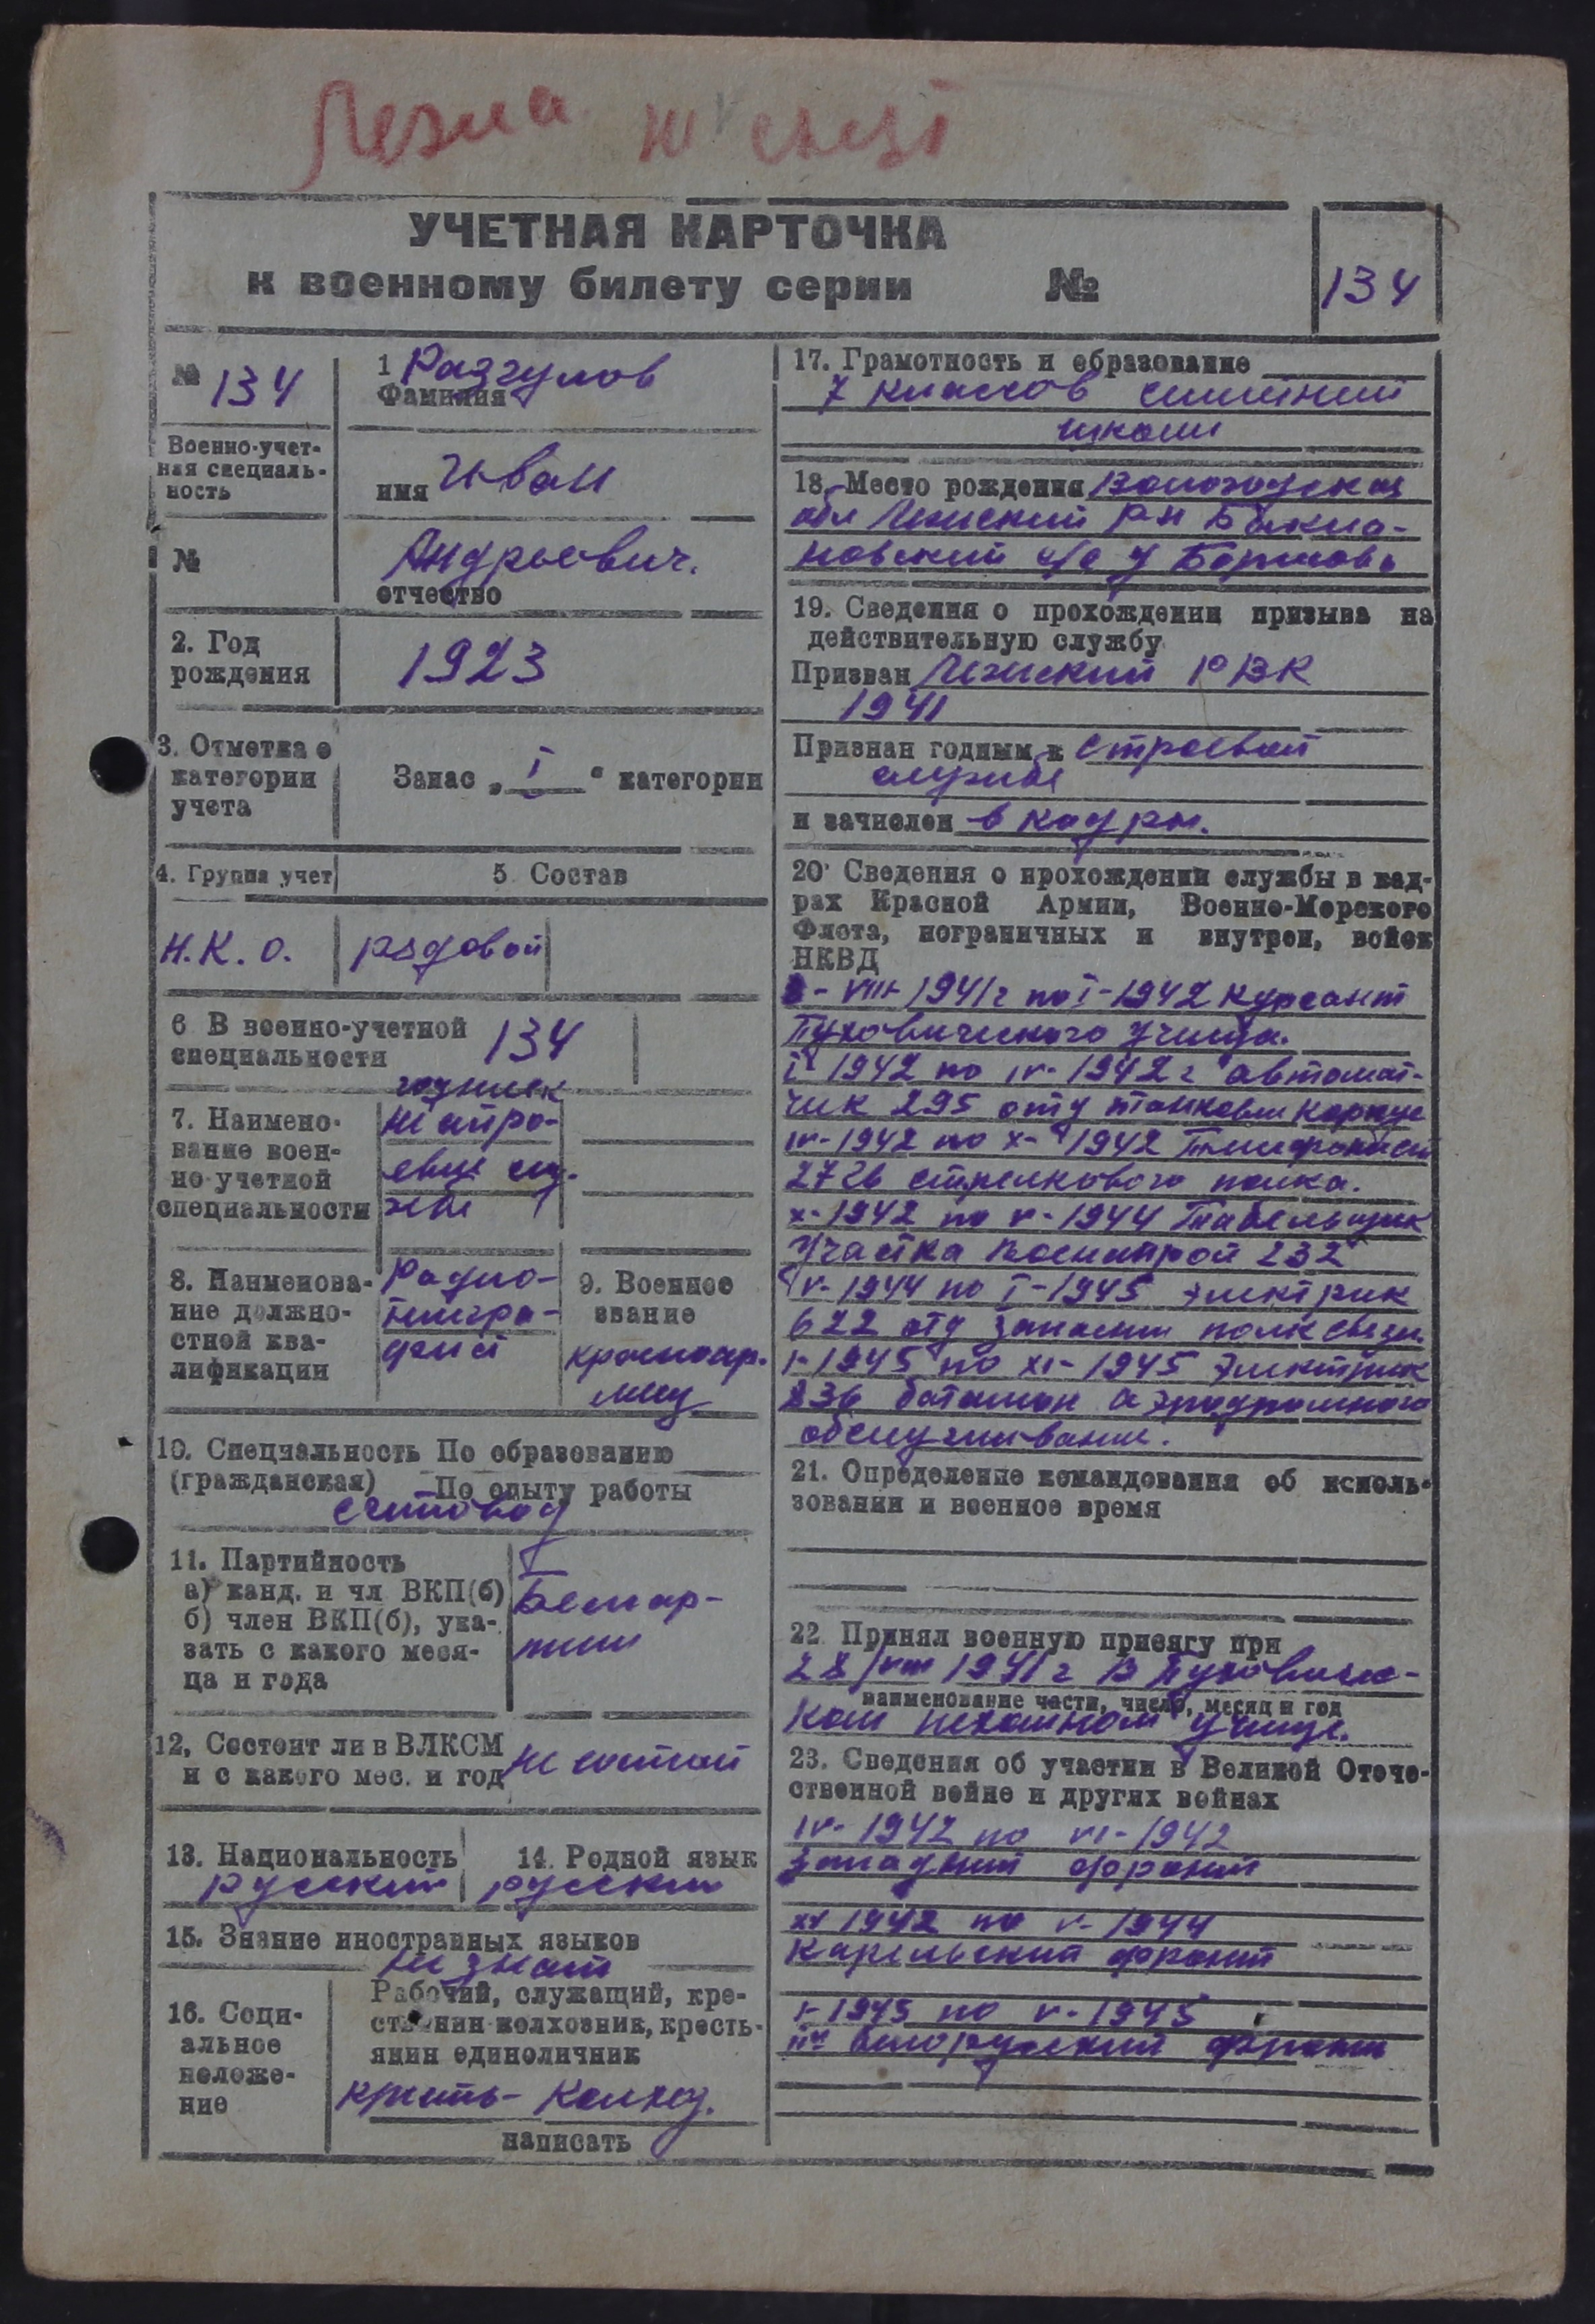 Лежа
УЧЕТНАЯ КАРТОЧКА
к военному билету серии №
134
№ 134
1 Разгулов
Фамилия
Военно-учет-
ная специаль-
ность
имя Иван
№
Андреевич.
отчество
2. Год
рождения
1923
3. Отметка о
категории
учета
Запас „ I “ категории
4. Группа учет
5 Состав
Н.К.О.
рядовой
6 В военно-учетной
специальности
134
7. Наимено-
вание воен-
но-учетной
специальности
годный
8. Наименова-
ние должно-
стной ква-
лификации
Радио-
телегра-
фист
9. Военное
звание
красноар-
меец
10. Специальность По образованию
(гражданская) По опыту работы
счетовод
11. Партийность
а) канд. и чл ВКП(б)
б) член ВКП(б), ука-
зать с какого меся-
ца и года
Беспар-
тийн
12, Состоит ли в ВЛКСМ
и с какого мес. и год
не состоит
13. Национальность
русский
14. Родной язык
русский
15. Знание иностранных языков
не знает
16. Соци-
альное
положе-
ние
Рабочий, служащий, кре-
стьянин-колхозник, кресть-
янин единоличник
крест- колхоз.
написать
17. Грамотность и образование
7 классов средней
школы
18. Место рождения Вологодская
обл Лежский р-н Бакла-
новский с/с д
19. Сведения о прохождении призыва на
действительную службу
Призван Лежский РВК
1941
Признан годным к строевой
службе
и зачислен в кадры.
20· Сведения о прохождении службы в кад-
рах Красной Армии, Военно-Морского
Флота, пограничных и внутрен, войск
НКВД
- VIII- 1941 г по I-1942 курсант
Пуховического училища.
I 1942 по IV- 1942 г автомат-
чик 295 отд танковый корпус
IV-1942 по X- 1942 Телефонист
стрелкового полка.
X-1942 по V-1944 Табельщик
участка Военстрой 232
V-1944 по I-1945 электрик
622 отд запасный полк связи
I-1945 по XI-1945 электрик
836 батальон аэродромного
обслуживания.
21. Определение командования об исполь-
зовании и военное время
22 Принял военную присягу при
28/VIII 1941 г в Пуховичес-
наименование части, число, месяц и год
ком пехотном училище.
23. Сведения об участии в Великой Отече-
ственной войне и других войнах
IV-1942 по VI-1942
Западный фронт
XI 1942 по V-1944
Карельский фронт
I-1945 по V-1945
белорусский фронт